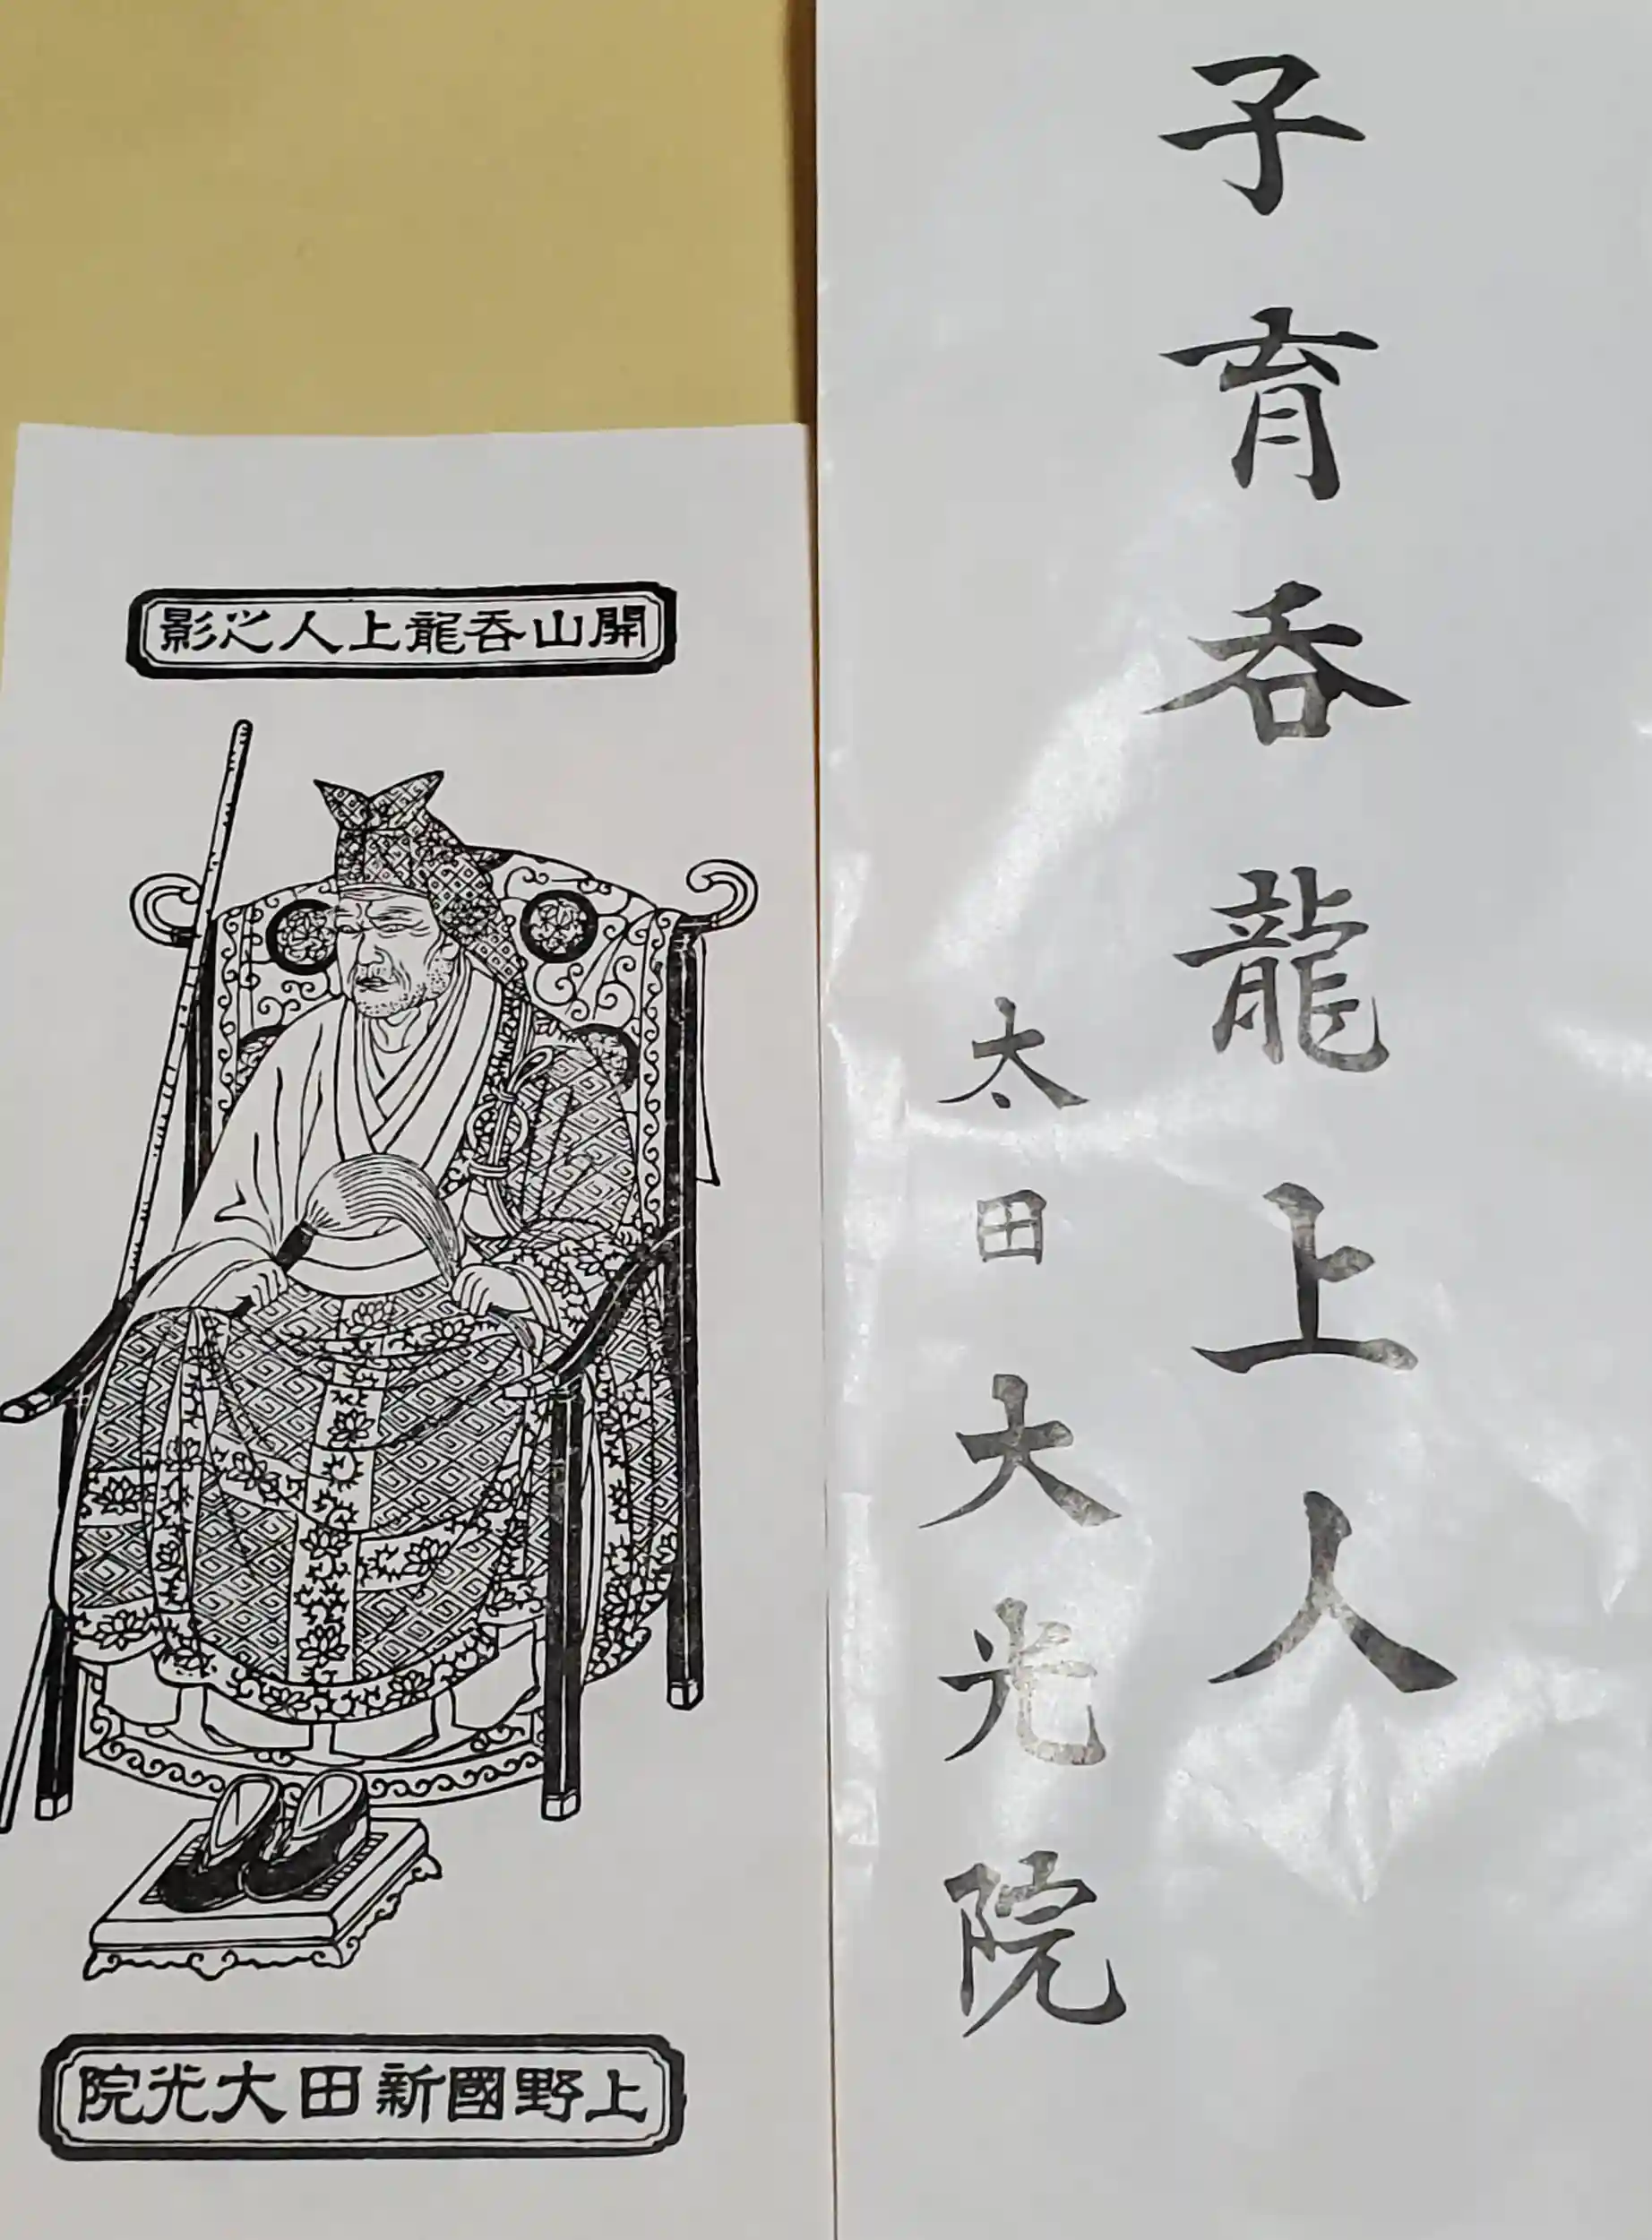 子育呑龍上人
太田大光院
開山呑龍上人之影
上野國新田大光院